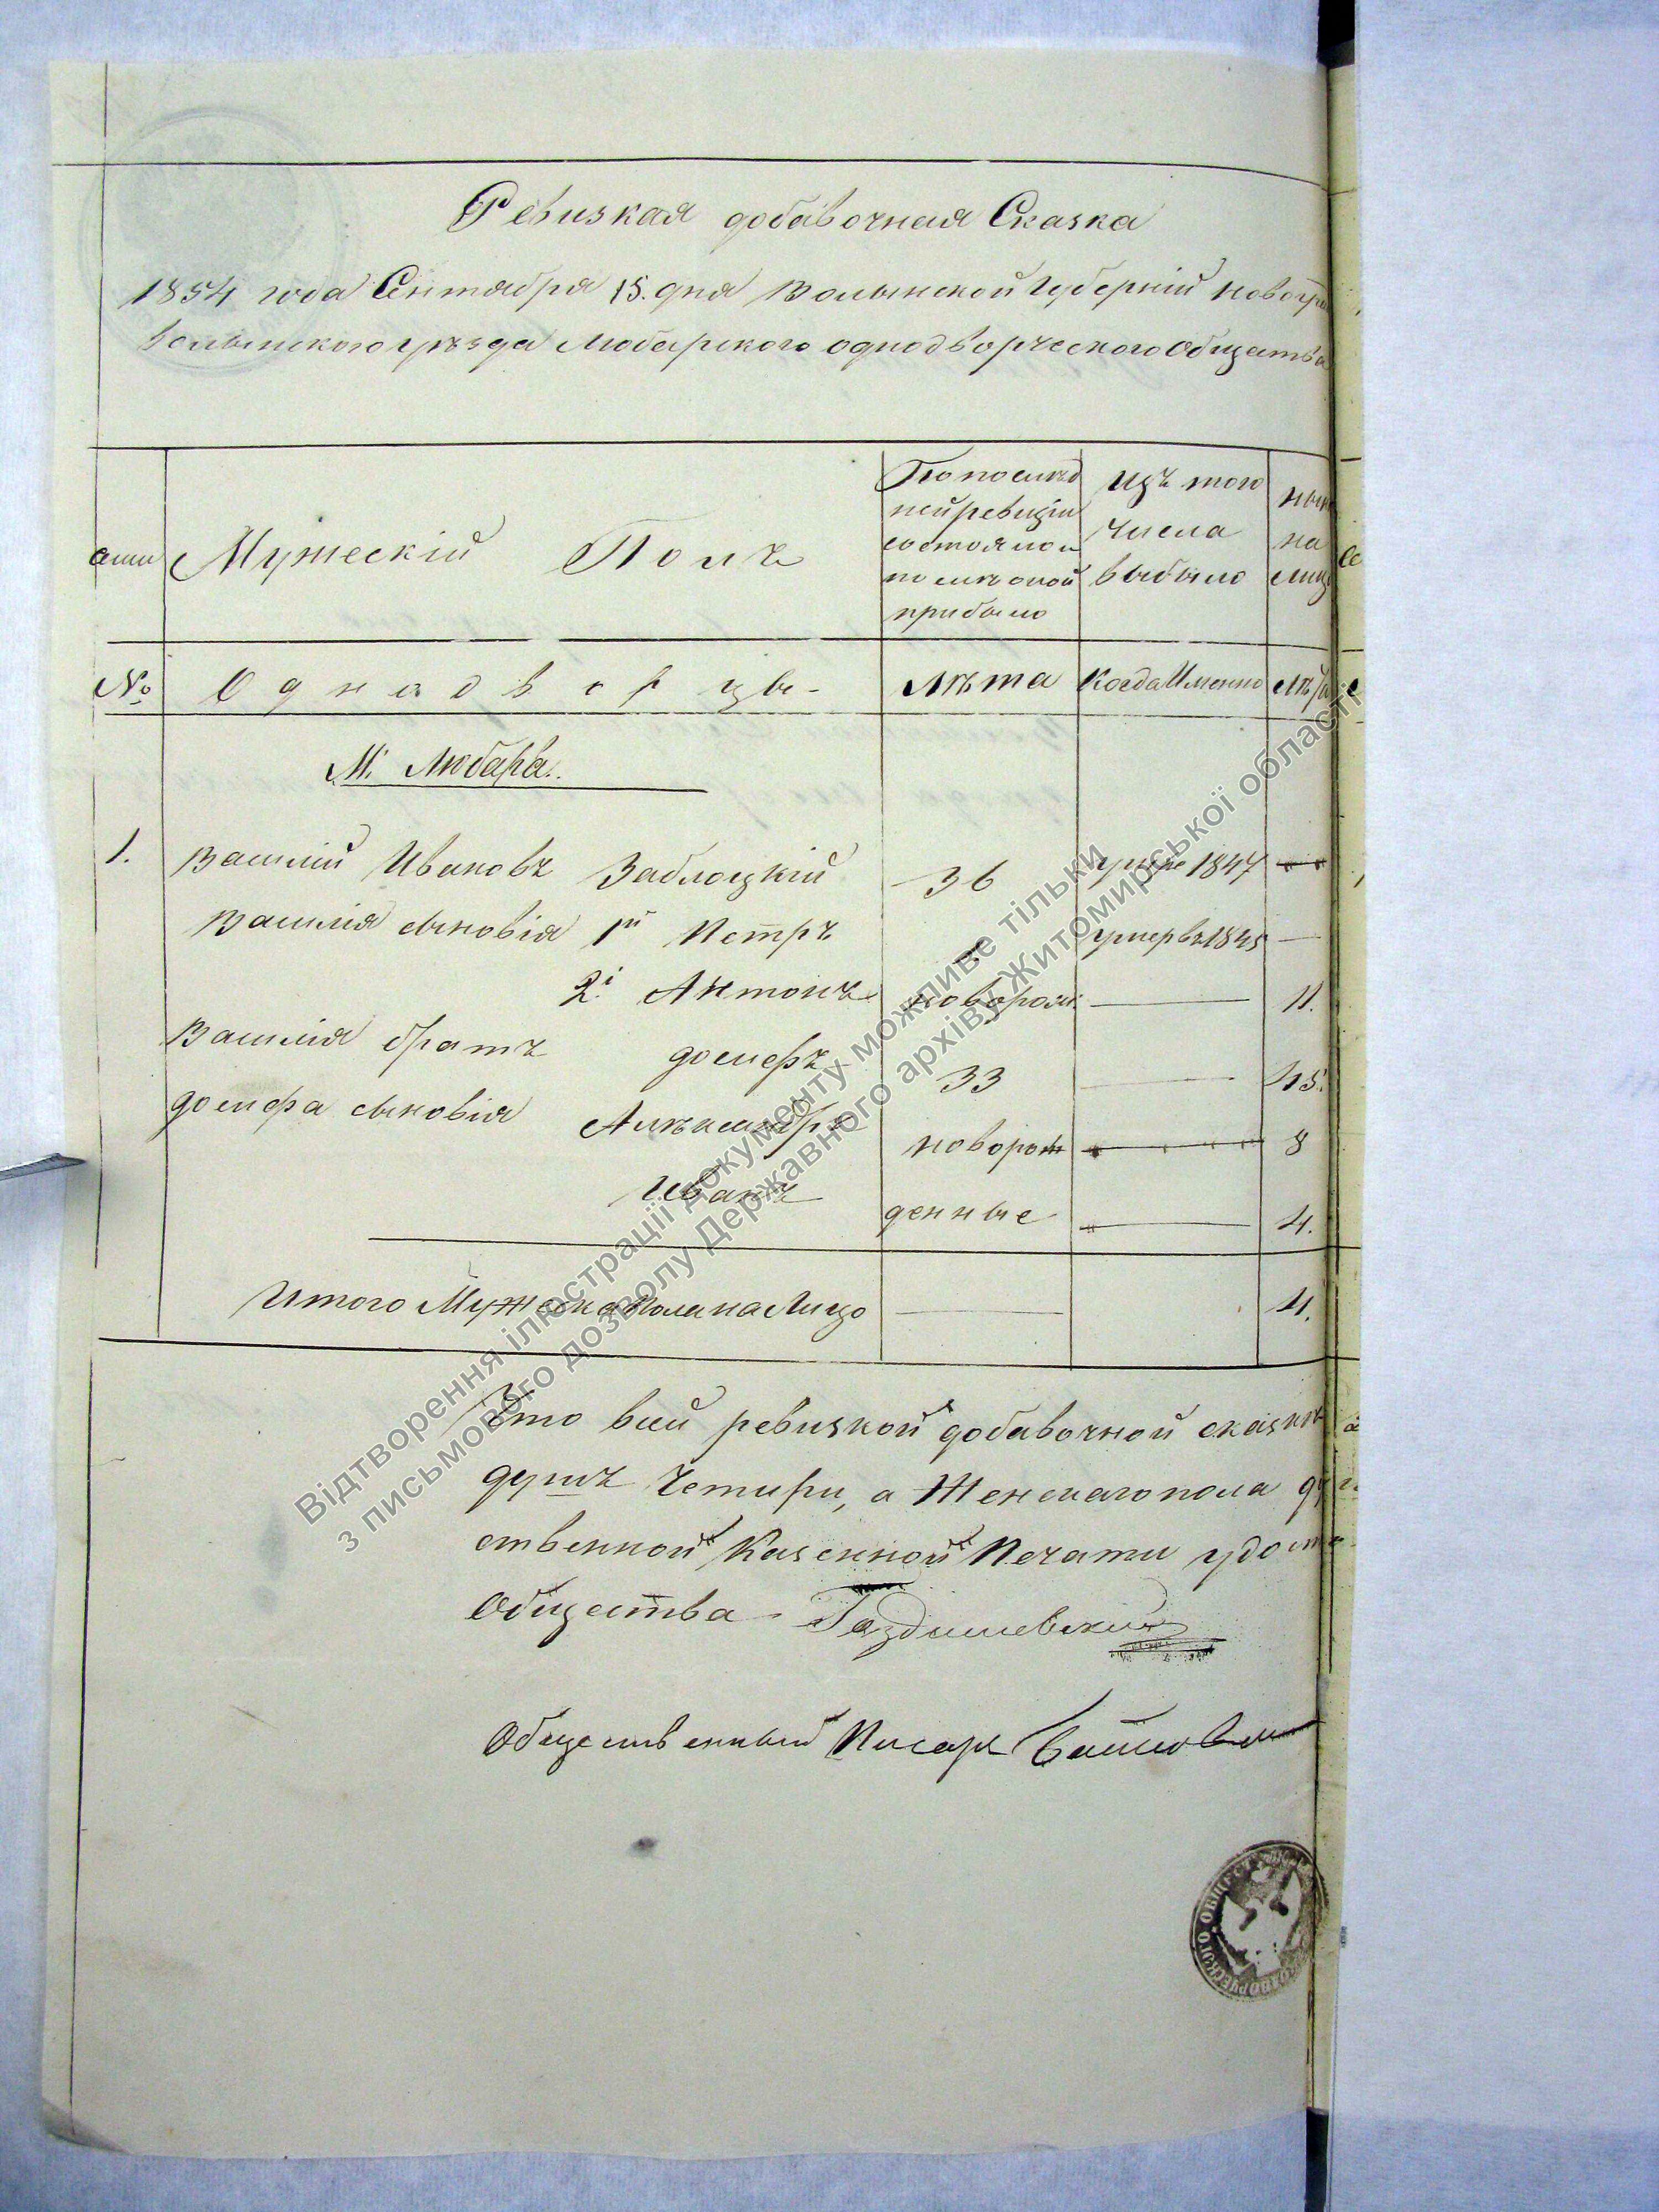 Ревизкая добавочная Сказка
1854 года Сентября 15. дня Волынской Губерніи Новогра
Волынского уѣзда Любарского однодворческого Общества
Мужескій Полъ
По послѣд
ней ревизіи
состояло и
послѣ оной
прибыло
Изъ того
числа
выбыло
ны
на
лиц
№ Однадворцы-
Лѣта
Когда Именно
Лѣта
М. Любара.
1. Василій Ивановъ Заблоцкій 36 умре 1847
Василія сыновія 1й Петръ умеръ 1845 —
2й Антонъ новорож: — 11.
Василія братъ Іосифъ 33 — 45.
Іосифа сыновія Александръ новорож — 8
Иванъ денные — 4.
Итого Мужеска Пола на Лицо — 4.
Что всей ревизкой добавочной сказкѣ
душъ Четыри, а Женскаго пола ду
ственной Казенной Печати удост
Общества
Общественный Писарь
ОБЩЕСТ
Відтворення ілюстрації документу можливе тільки
з письмового дозволу Державного архіву Житомирської області